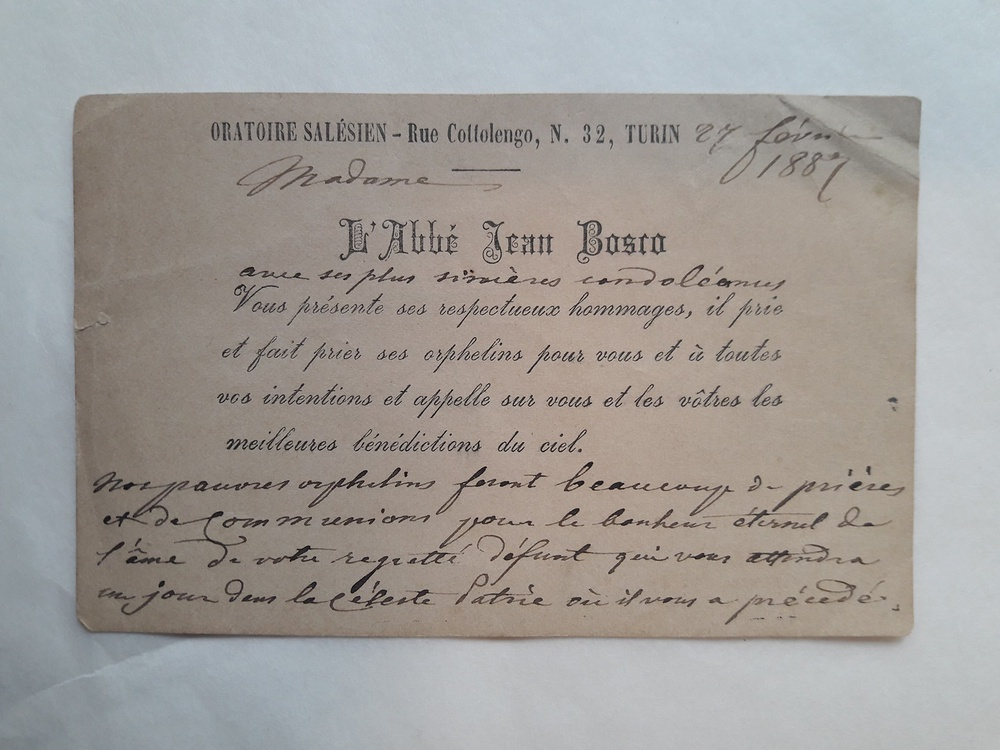 ORATOIRE SALÉSIEN - Rue Cottolengo, N. 32, TURIN 27 février
1887
Madame
L'Abbé Jean Bosco
avec ses plus sincères condoléances
Vous présente ses respectueux hommages, il prie
et fait prier ses orphelins pour vous et à toutes
vos intentions et appelle sur vous et les vôtres les
meilleures bénédictions du ciel.
Nos pauvres orphelins feront beaucoup de prières
et de Communions pour le bonheur éternel de
l'âme de votre regretté défunt qui vous attendra
un jour dans la Céleste Patrie où il vous a précédé.